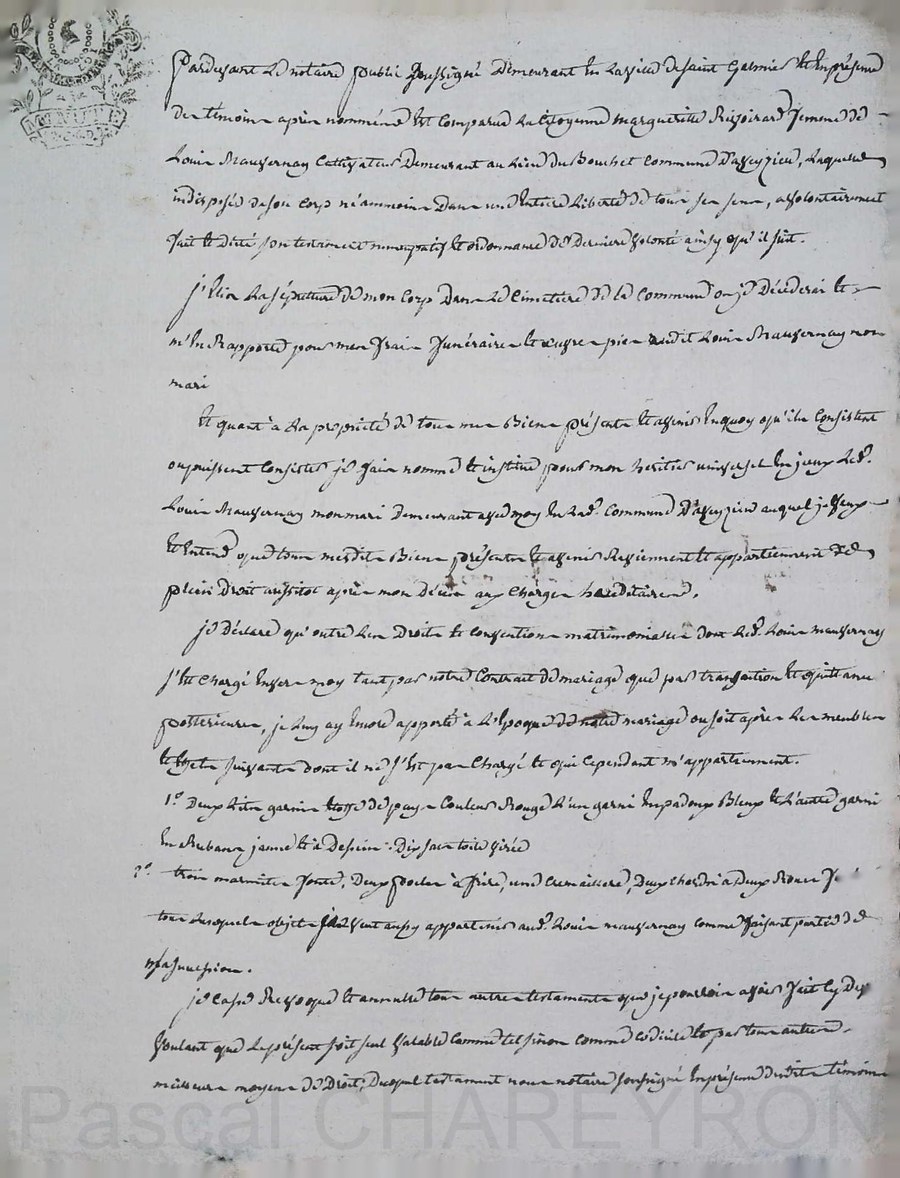 MINUTE
Pardevant Le notaire public Soussigné Demeurant En La ville de saint Galmier Et En présence
des témoins après nommés Est Comparue La Citoyenne marguerite femme de
Louis Mauvernay Cultivateur Demeurant au Lieu du Bouchet Commune D'aveyzieu, Laquelle
indisposée de son Corps néammoins Dans une Entière Liberté de tous ses sens, a volontairement
fait Et dicté son testament nuncupatif Et ordonnance de Derniere volonté ainsy qu'il suit.
j'Elis La sépulture de mon Corps Dans Le Cimetiere de la Commune où je Décéderai Et
m'En Rapporte pour mes frais funéraires Et œuvres pies audit Louis Mauvernay mon
mari
Et quant à La propriété de tous mes Biens présents Et avenir En quoy qu'ils Consistent
ou puissent Consister je fais nomme Et institue pour mon heritier universel En jceux Led.
Louis Mauvernay mon mari Demeurant avec moy En Lad. Commune D'aveyzieu auquel je veux
Et Entend que tous mesdits Biens présents Et avenir Reviennent Et appartiennent de
plein Droit aussitot après mon Décès aux Charges héréditaires.
je Déclare qu'outre Les Droits Et Conventions matrimoniales dont Led. Louis mauvernay
s'Est Chargé Envers moy tant par notre Contrat de mariage que par transaction Et quittance
postérieures, je Luy ay Encore apporté à L'Epoque de notre mariage ou soit après Les meubles
Et Effets suivants dont il ne s'Est pas Chargé Et qui Cependant m'appartiennent.
1.° Deux Lits garnis Etoffe de pays Couleur Rouge L'un garni En padoux Bleux Et L'autre garni
En Rubans jaune Et à Dessin. Dix sacs toile
2.° trois marmites fonte, Deux poeles à frire, une Cremaillere, Deux à Deux Roues
tous Lesquels objets je Veux appartenir aud. Louis mauvernay Comme faisant partie de
ma succession.
je Casse Revoque Et annulle tous autres testaments que je pourrois avoir fait Cy Devant
Voulant que Le présent soit seul Valable Comme tel sinon Comme Codicile Et par tous autres
meilleurs moyens de Droit; Duquel testament nous notaire soussigné En présence desdits témoins
Pascal CHAREYRON